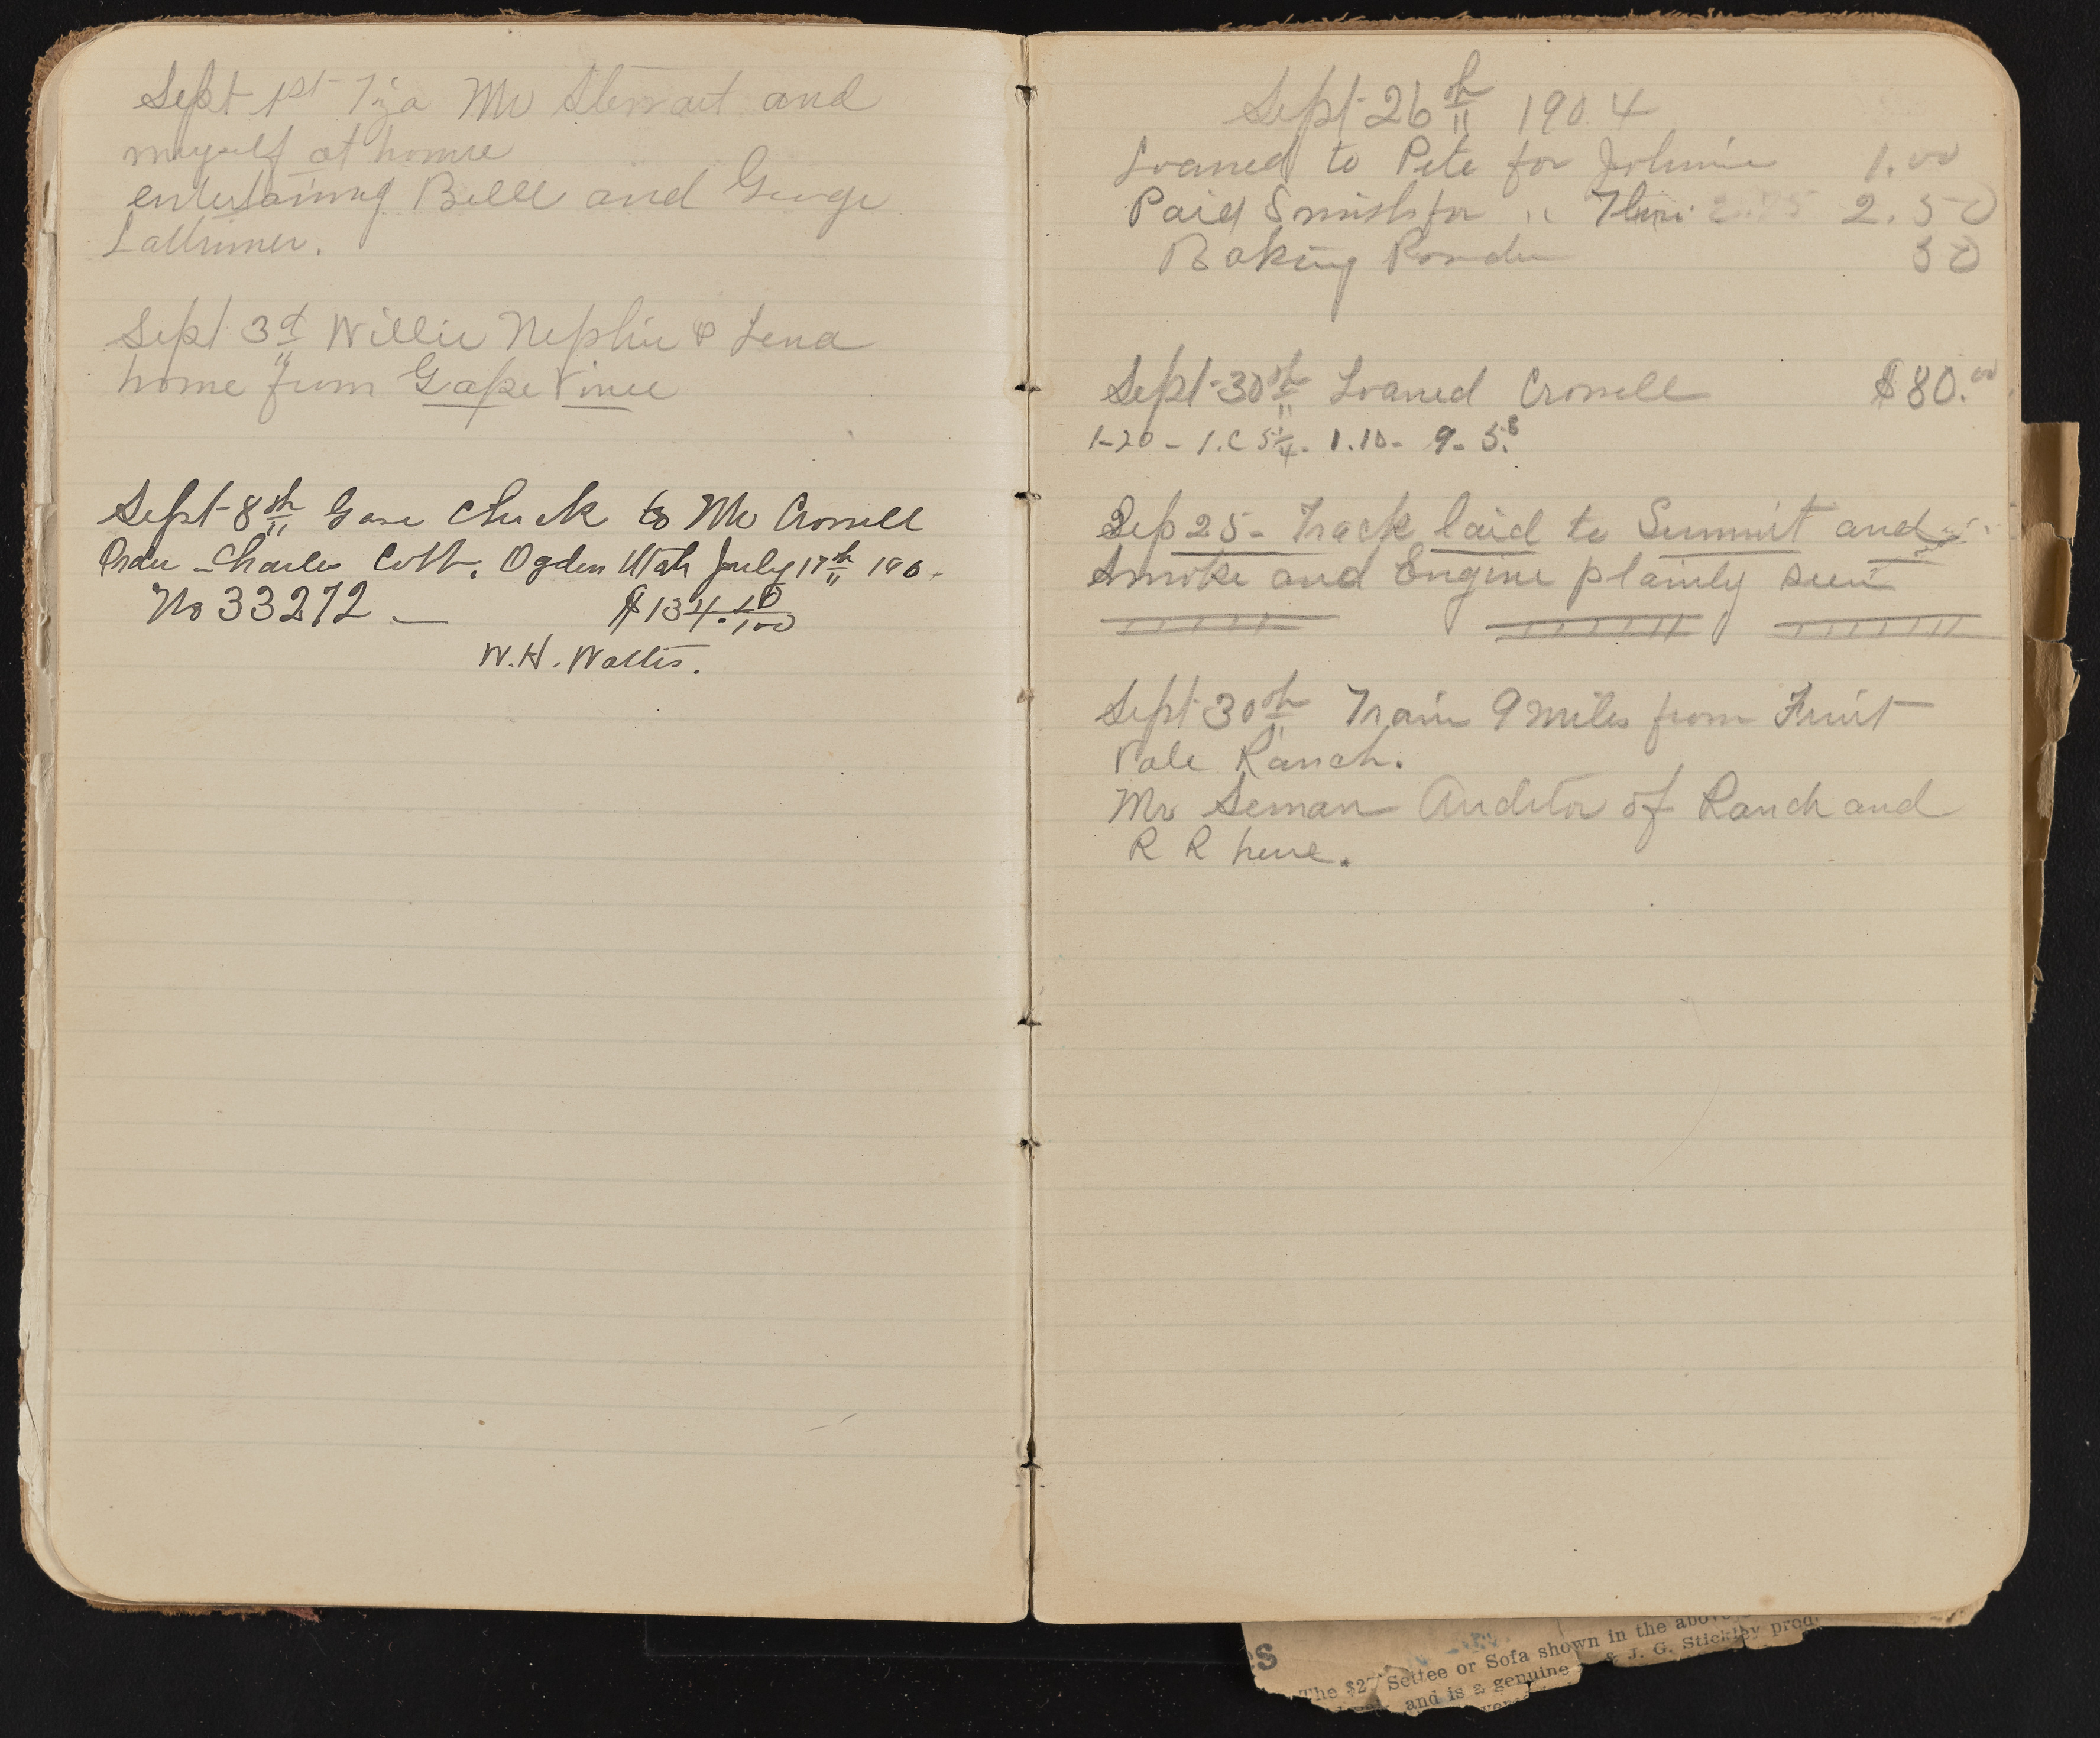 Sept 1st Tiza Mr Stewart and
myself at home
entertaining Belle and George
Lattimer.
Sept 3d Willie Nephie & Lena
home from Gape Vinee
Sept 8th Gave Check to Mr Crowell
Order Charles Cobb, Ogden Utah July 17th 190.
No 33272 — $134.10/100
W.H. Wattis.
Sept 26th 1904
Loaned to Pete for Johnie 1.00
Paid Smith for " 2.50
Baking Powder 50
Sept 30th Loaned Crowell $80.00
1-20 - 1.C 5 1/4 - 1.10 - 9 - 5.8
Sep 25 - Track laid to Summit and
Smoke and Engine plainly seen
Sept 30th Train 9 miles from Fruit
Vale Ranch.
Mr Seman Auditor of Ranch and
R R here.
s
The $27 Settee or Sofa shown in the above
and is a genuine & J. G. Stickley prod